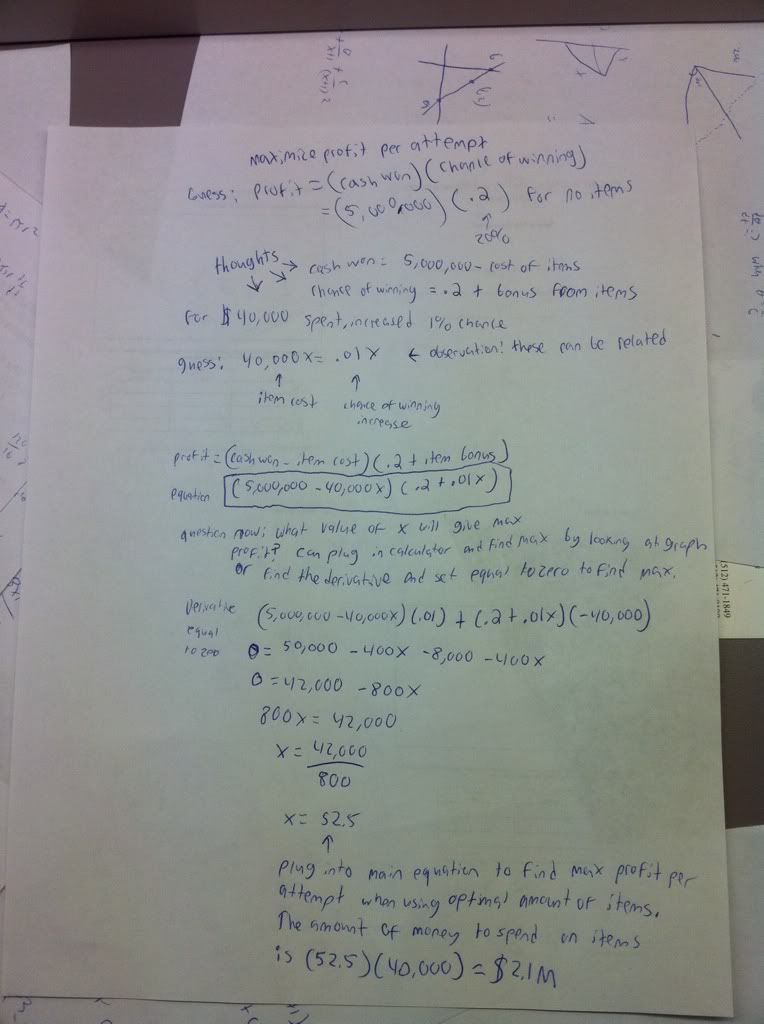 maximize profit per attempt
Guess: profit = (cash won)(chance of winning)
= (5,000,000)(.2) for no items
↑
20%
thoughts → cash won = 5,000,000 - cost of items
chance of winning = .2 + bonus from items
For $40,000 spent, increased 1% chance
guess: 40,000x = .01x ← observation! these can be related
↑ ↑
item cost chance of winning
increase
profit = (cash won - item cost)(.2 + item bonus)
equation (5,000,000 - 40,000x)(.2 + .01x)
question now: what value of x will give max
profit? can plug in calculator and find max by looking at graph
or find the derivative and set equal to zero to find max.
Derivative (5,000,000 - 40,000x)(.01) + (.2 + .01x)(-40,000)
equal
to zero 0 = 50,000 - 400x - 8,000 - 400x
0 = 42,000 - 800x
800x = 42,000
x = 42,000
800
x = 52.5
↑
plug into main equation to find max profit per
attempt when using optimal amount of items.
The amount of money to spend on items
is (52.5)(40,000) = $2.1M
(512) 471-1849